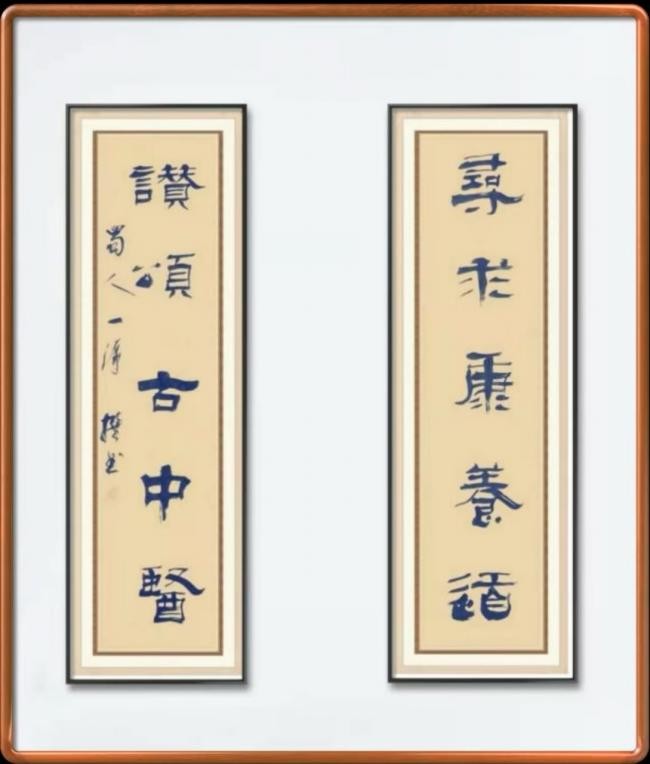 尋求康養道
讚頌古中醫
蜀人一譯撰书